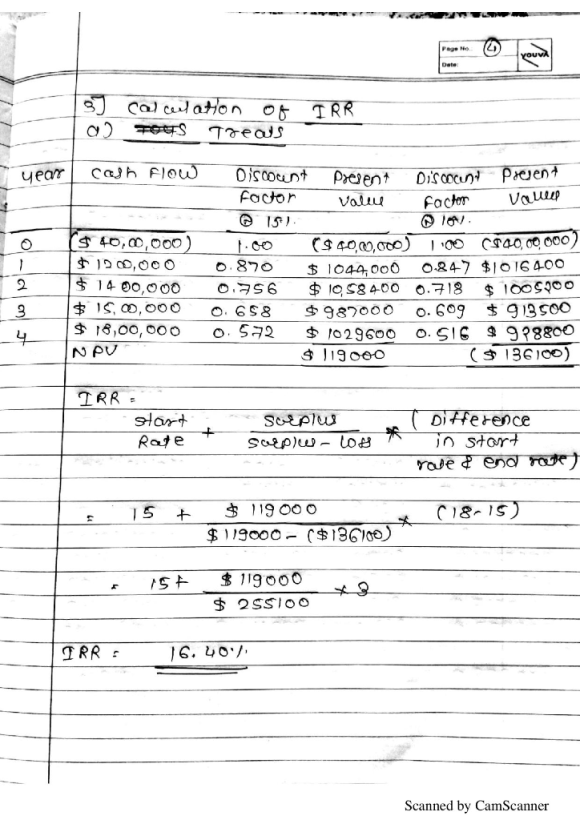 Page No. 4
Date:
YOUVA
3] Calculation of IRR
a) Treats
year Cash Flow Discount Present Discount Present
Factor Value Factor Value
@ 15%. @ 18%.
0 ($ 40,00,000) 1.00 ($40,00,000) 1.00 ($40,00,000)
1 $ 1200,000 0.870 $ 1044,000 0.847 $1016400
2 $ 1400,000 0.756 $ 10,58400 0.718 $ 1005200
3 $ 15,00,000 0.658 $987000 0.609 $ 913500
4 $ 18,00,000 0.572 $ 1029600 0.516 $ 928800
NPV $ 119000 ($ 136100)
IRR =
Start Rate + Surplus / Surplus - Loss * (Difference in start rate & end rate)
= 15 + $ 119000 / $119000 - ($136100) * (18-15)
= 15 + $ 119000 / $ 255100 * 3
IRR = 16.40%.
Scanned by CamScanner